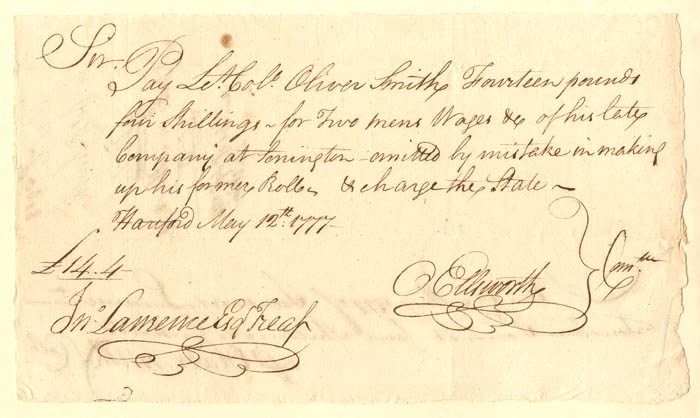 Sir
Pay Lt. Col. Oliver Smith Fourteen pounds
four Shillings - for Two mens Wages &c of his late
Company at Stonington - omitted by mistake in making
up his former Rolls & charge the State
Hartford May 12th. 1777
£14.4
OEllsworth } Comtee
Jno Lawrence Esq Treasr